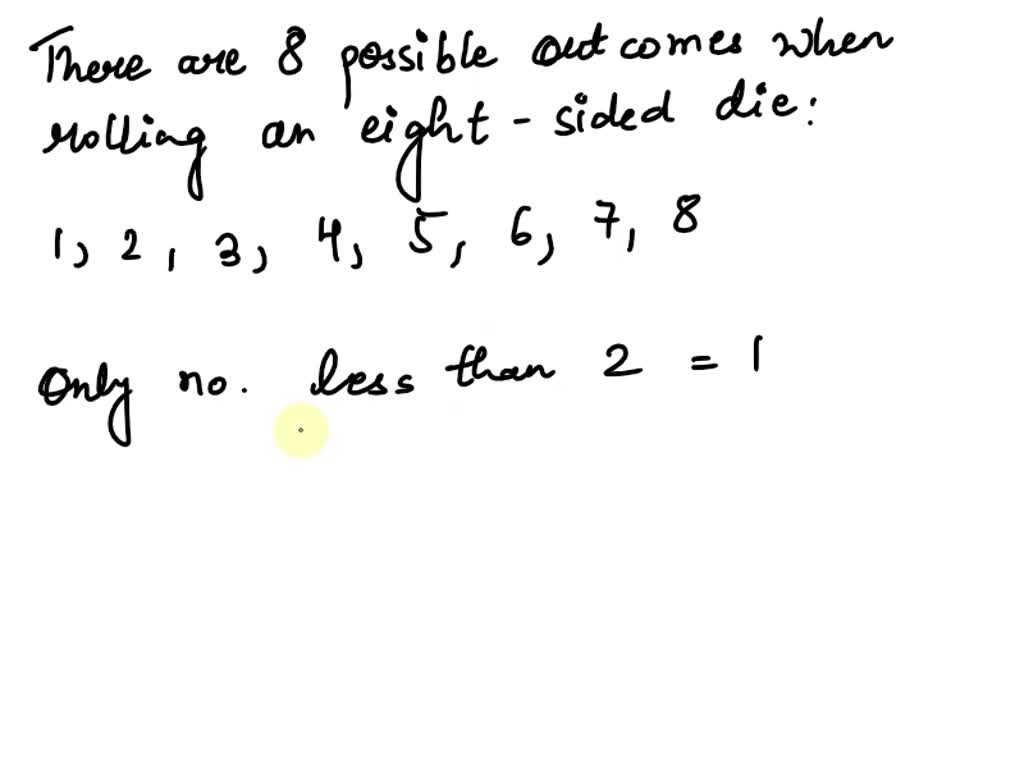 There are 8 possible outcomes when
rolling an eight-sided die:
1, 2, 3, 4, 5, 6, 7, 8
Only no. less than 2 = 1